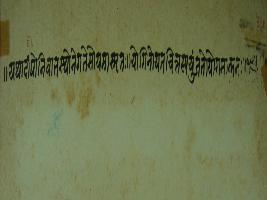 ॥यथादीपोनिवातस्थोनेंगतेसोपमास्मृता॥योगिनोयतचित्तस्ययुंजतोयोगमात्मनः॥१९॥